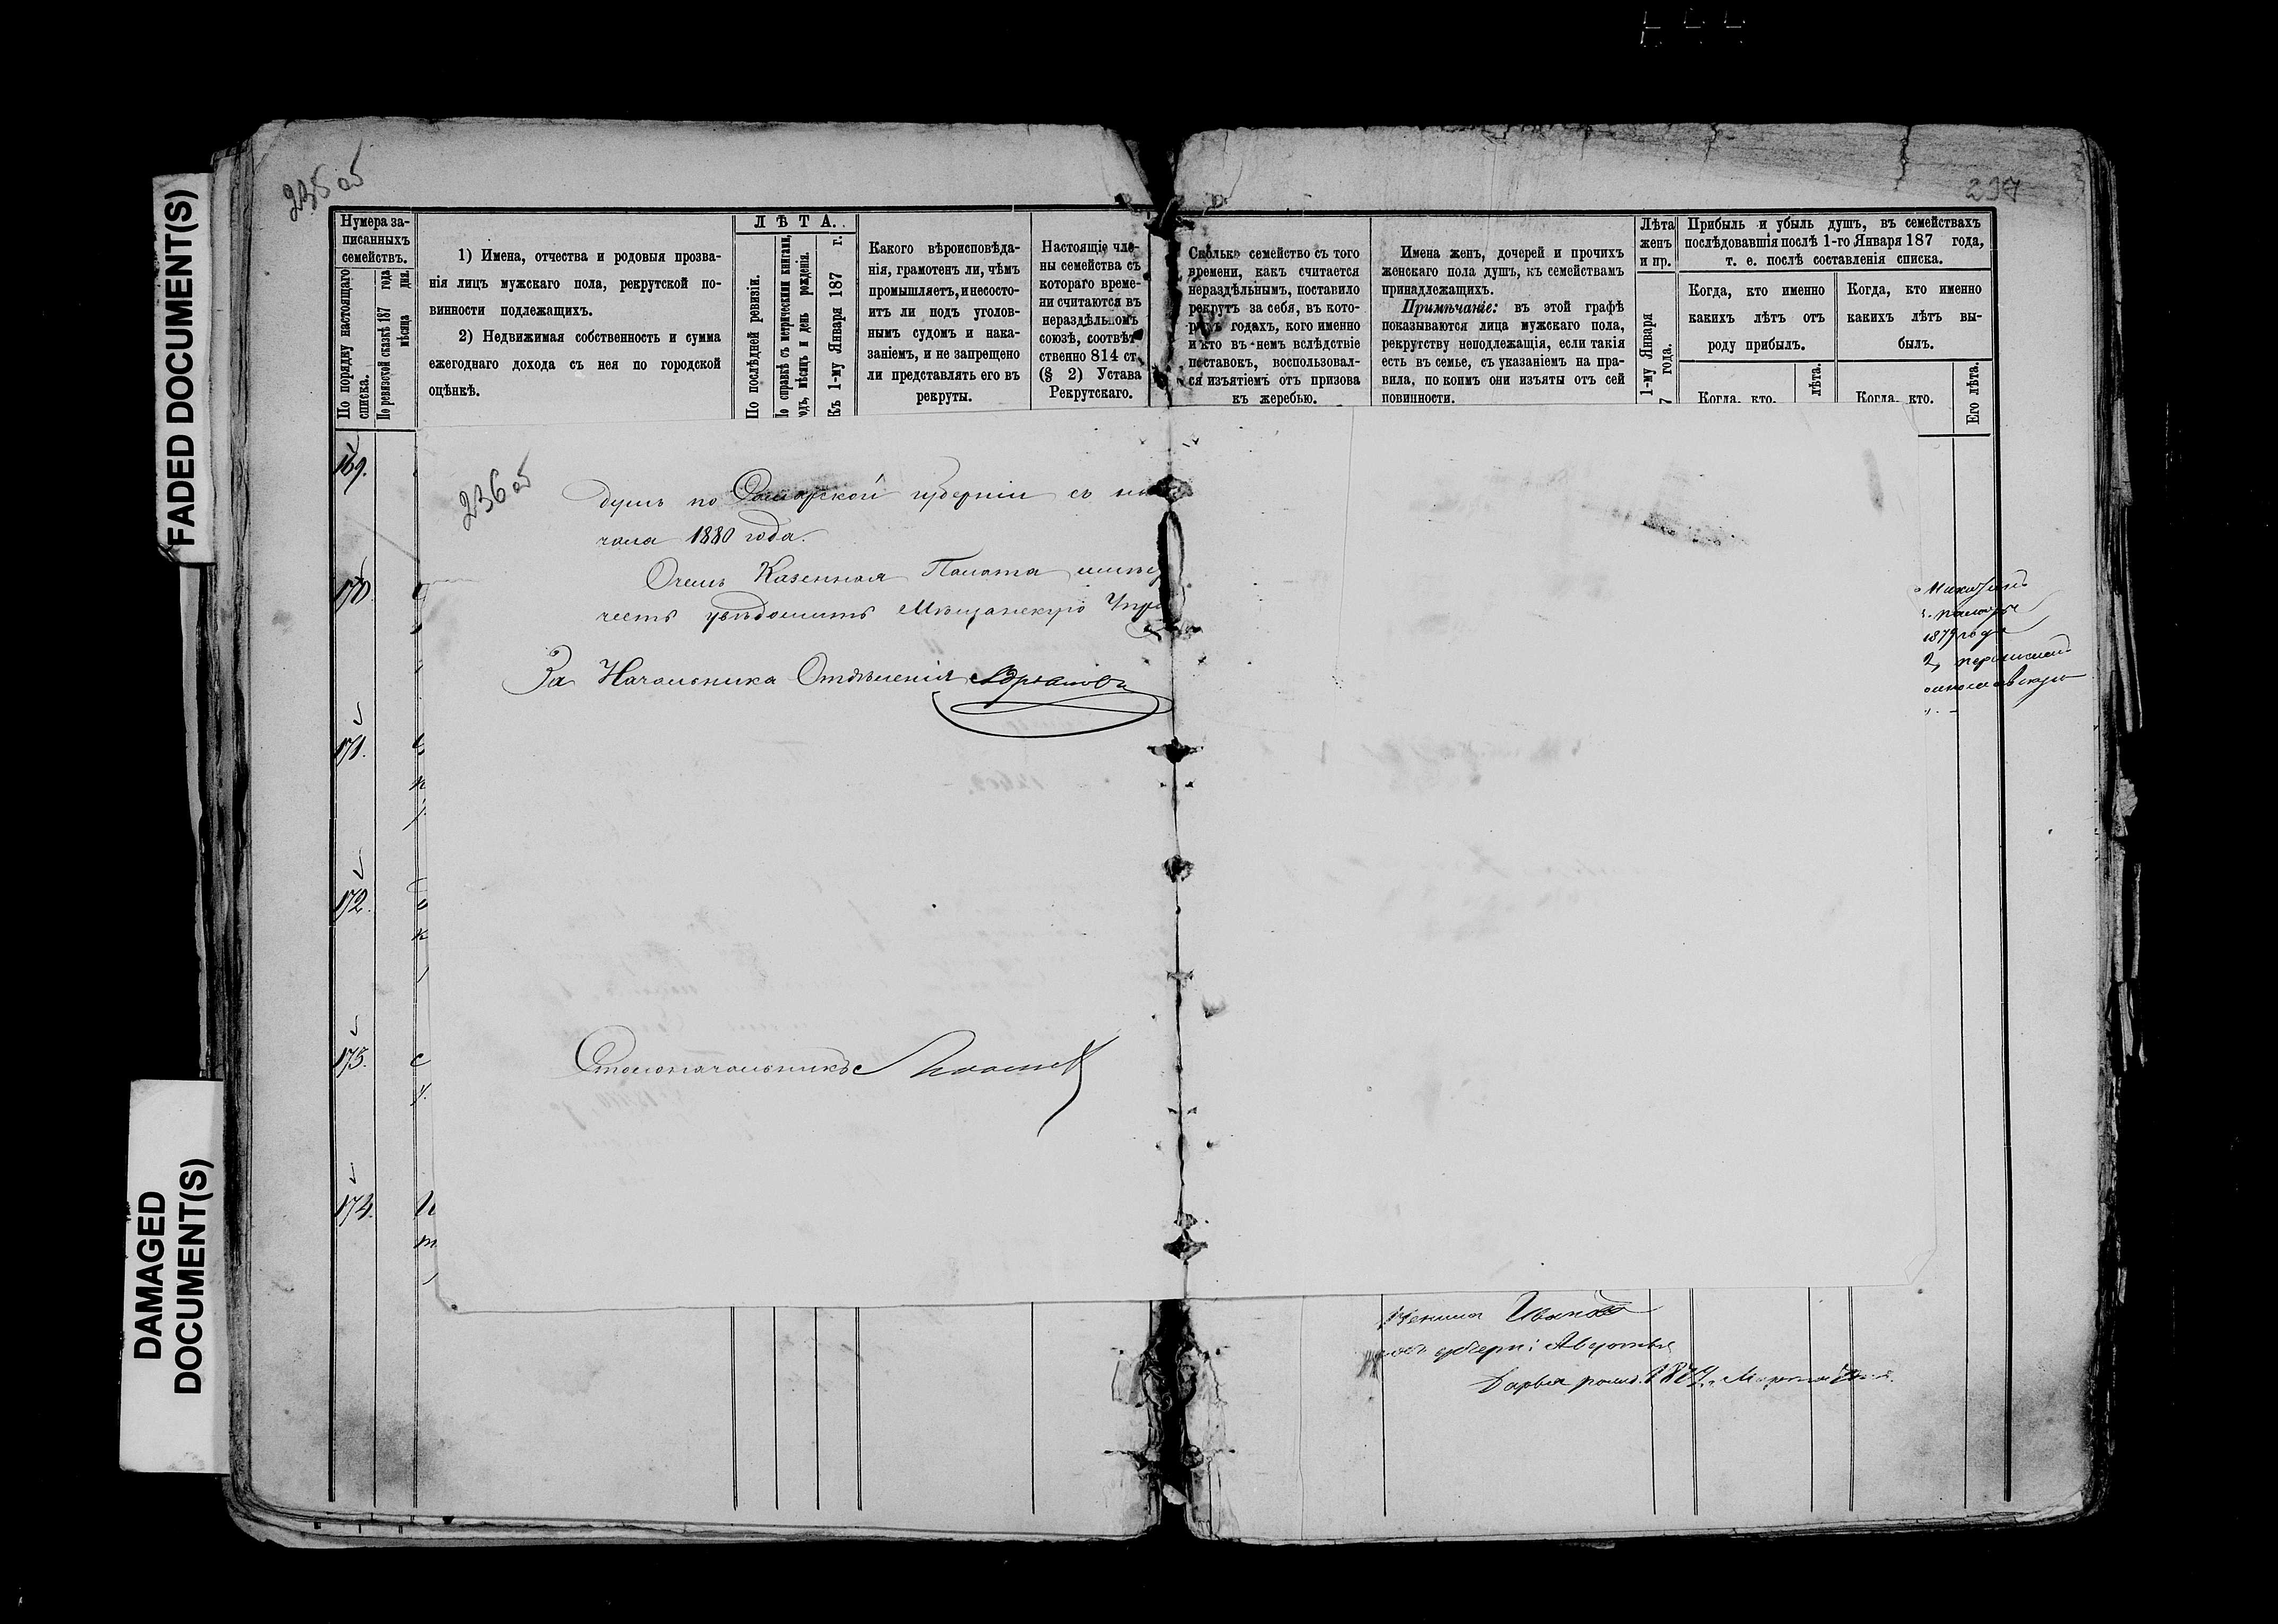 FADED DOCUMENT(S)
DAMAGED
DOCUMENT(S)
235 об
237
Нумера за-
писанныхъ
семействъ.
По порядку настоящаго
списка.
По ревизской сказкѣ 187 года
мѣсяца дня.
1) Имена, отчества и родовыя прозва-
нія лицъ мужскаго пола, рекрутской по-
винности подлежащихъ.
2) Недвижимая собственность и сумма
ежегоднаго дохода съ нея по городской
оцѣнкѣ.
Л Ѣ Т А.
По послѣдней ревизіи.
По справкѣ съ метрическими книгами,
годъ, мѣсяцъ и день рожденія.
Къ 1-му Января 187 г.
Какого вѣроисповѣда-
нія, грамотенъ ли, чѣмъ
промышляетъ, и несосто-
итъ ли подъ уголов-
нымъ судомъ и нака-
заніемъ, и не запрещено
ли представлять его въ
рекруты.
Настоящіе чле-
ны семейства съ
котораго време-
ни считаются въ
нераздѣльномъ
союзѣ, соотвѣт-
ственно 814 ст.
(§ 2) Устава
Рекрутскаго.
Сколько семейство съ того
времени, какъ считается
нераздѣльнымъ, поставило
рекрутъ за себя, въ кото-
рыхъ годахъ, кого именно
и кто въ немъ вслѣдствіе
поставокъ, воспользовал-
ся изъятіемъ отъ призова
къ жеребью.
Имена женъ, дочерей и прочихъ
женскаго пола душъ, къ семействамъ
принадлежащихъ.
Примѣчаніе: въ этой графѣ
показываются лица мужскаго пола,
рекрутству неподлежащія, если такія
есть въ семьѣ, съ указаніемъ на пра-
вила, по коимъ они изъяты отъ сей
повинности.
Лѣта
женъ
и пр.
1-му Января
7 года.
Прибыль и убыль душъ, въ семействахъ
послѣдовавшія послѣ 1-го Января 187 года,
т. е. послѣ составленія списка.
Когда, кто именно
какихъ лѣтъ отъ
роду прибылъ.
Когда, кто именно
какихъ лѣтъ вы-
былъ.
Когда, кто.
лѣта.
Когда, кто.
Его лѣта.
169.
170.
171.
172.
173.
174.
236 об
душъ по Самарской губерніи съ на
чала 1880 года.
О чемъ Казенная Палата имѣе
честь увѣдомить Мѣщанскую Упра
За Начальника Отдѣленія
Столоначальникъ
1879 года
Ивано
губерн:
Дарья рожд. 187